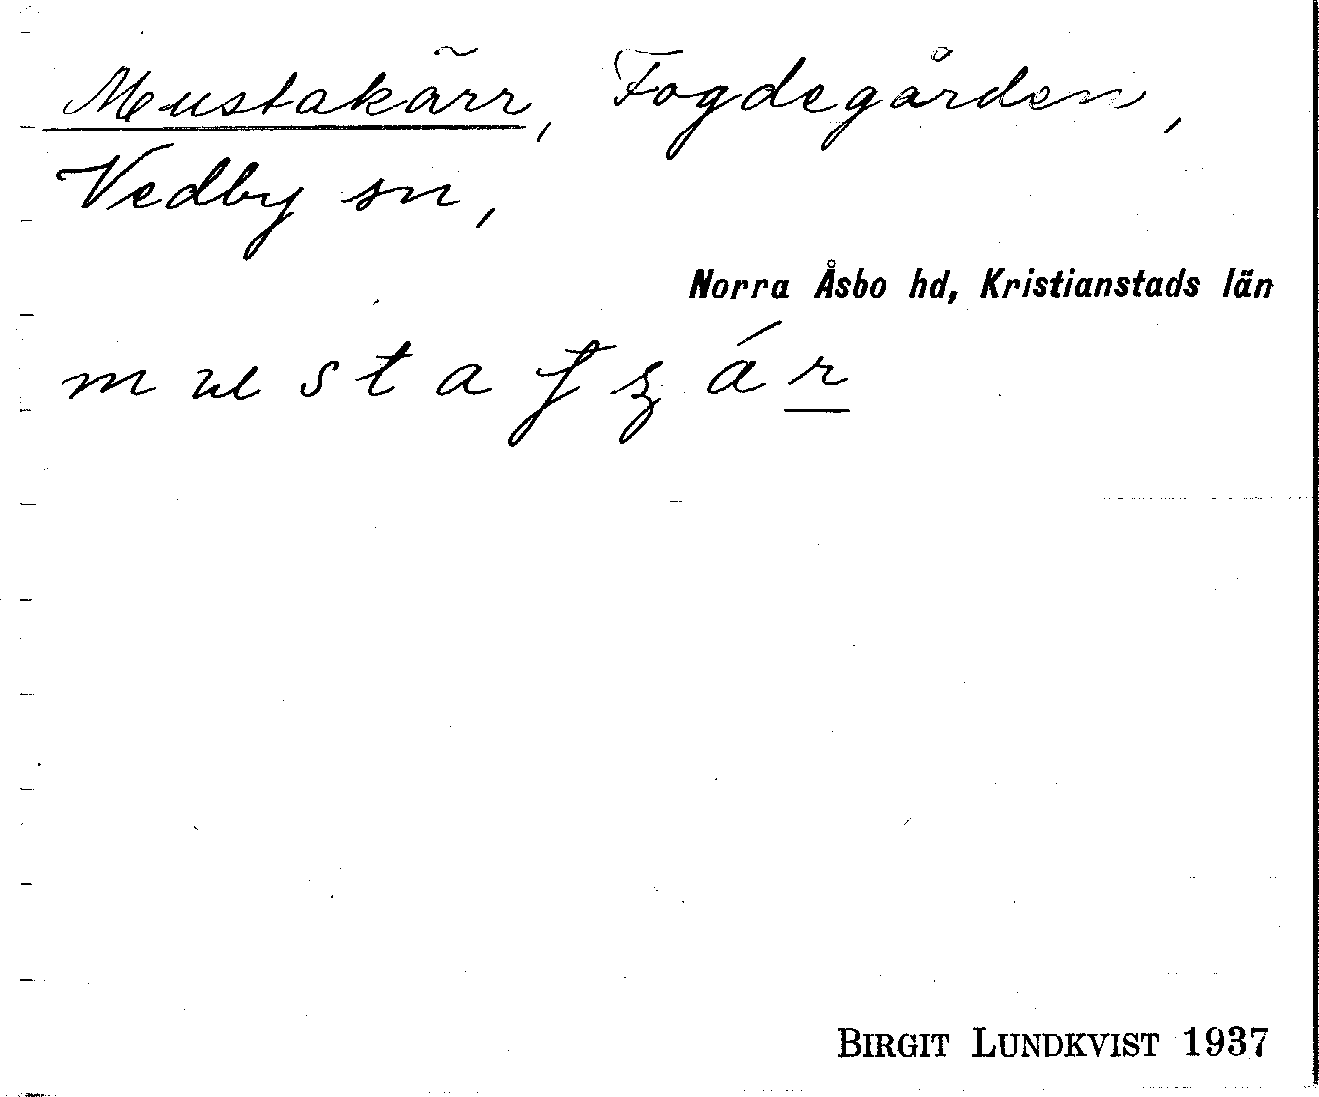 Mustakärr, Fogdegården,
Vedby sn,
Norra Åsbo hd, Kristianstads län
BIRGIT LUNDKVIST 1937